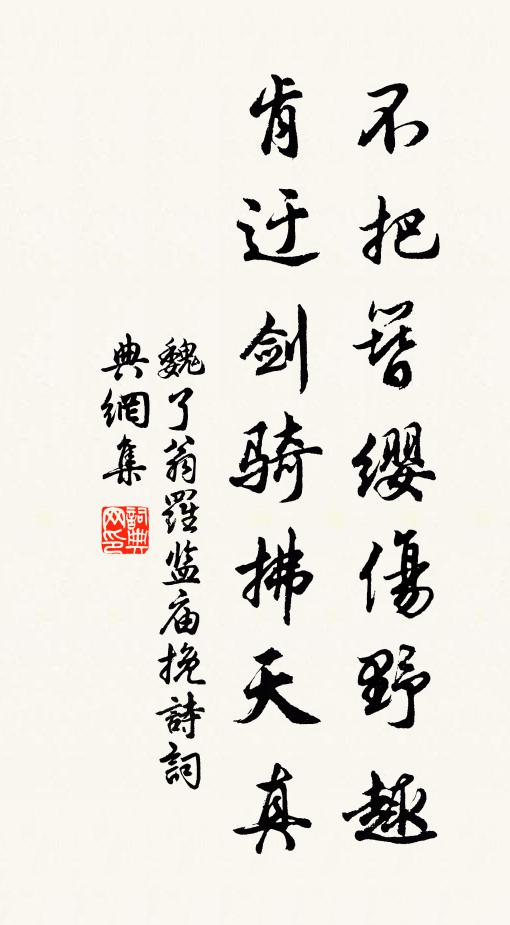 不把簪缨傷野趣
肯迂剑骑拂天真
魏了翁羅监庙挽詩詞
典網集
詞典网印